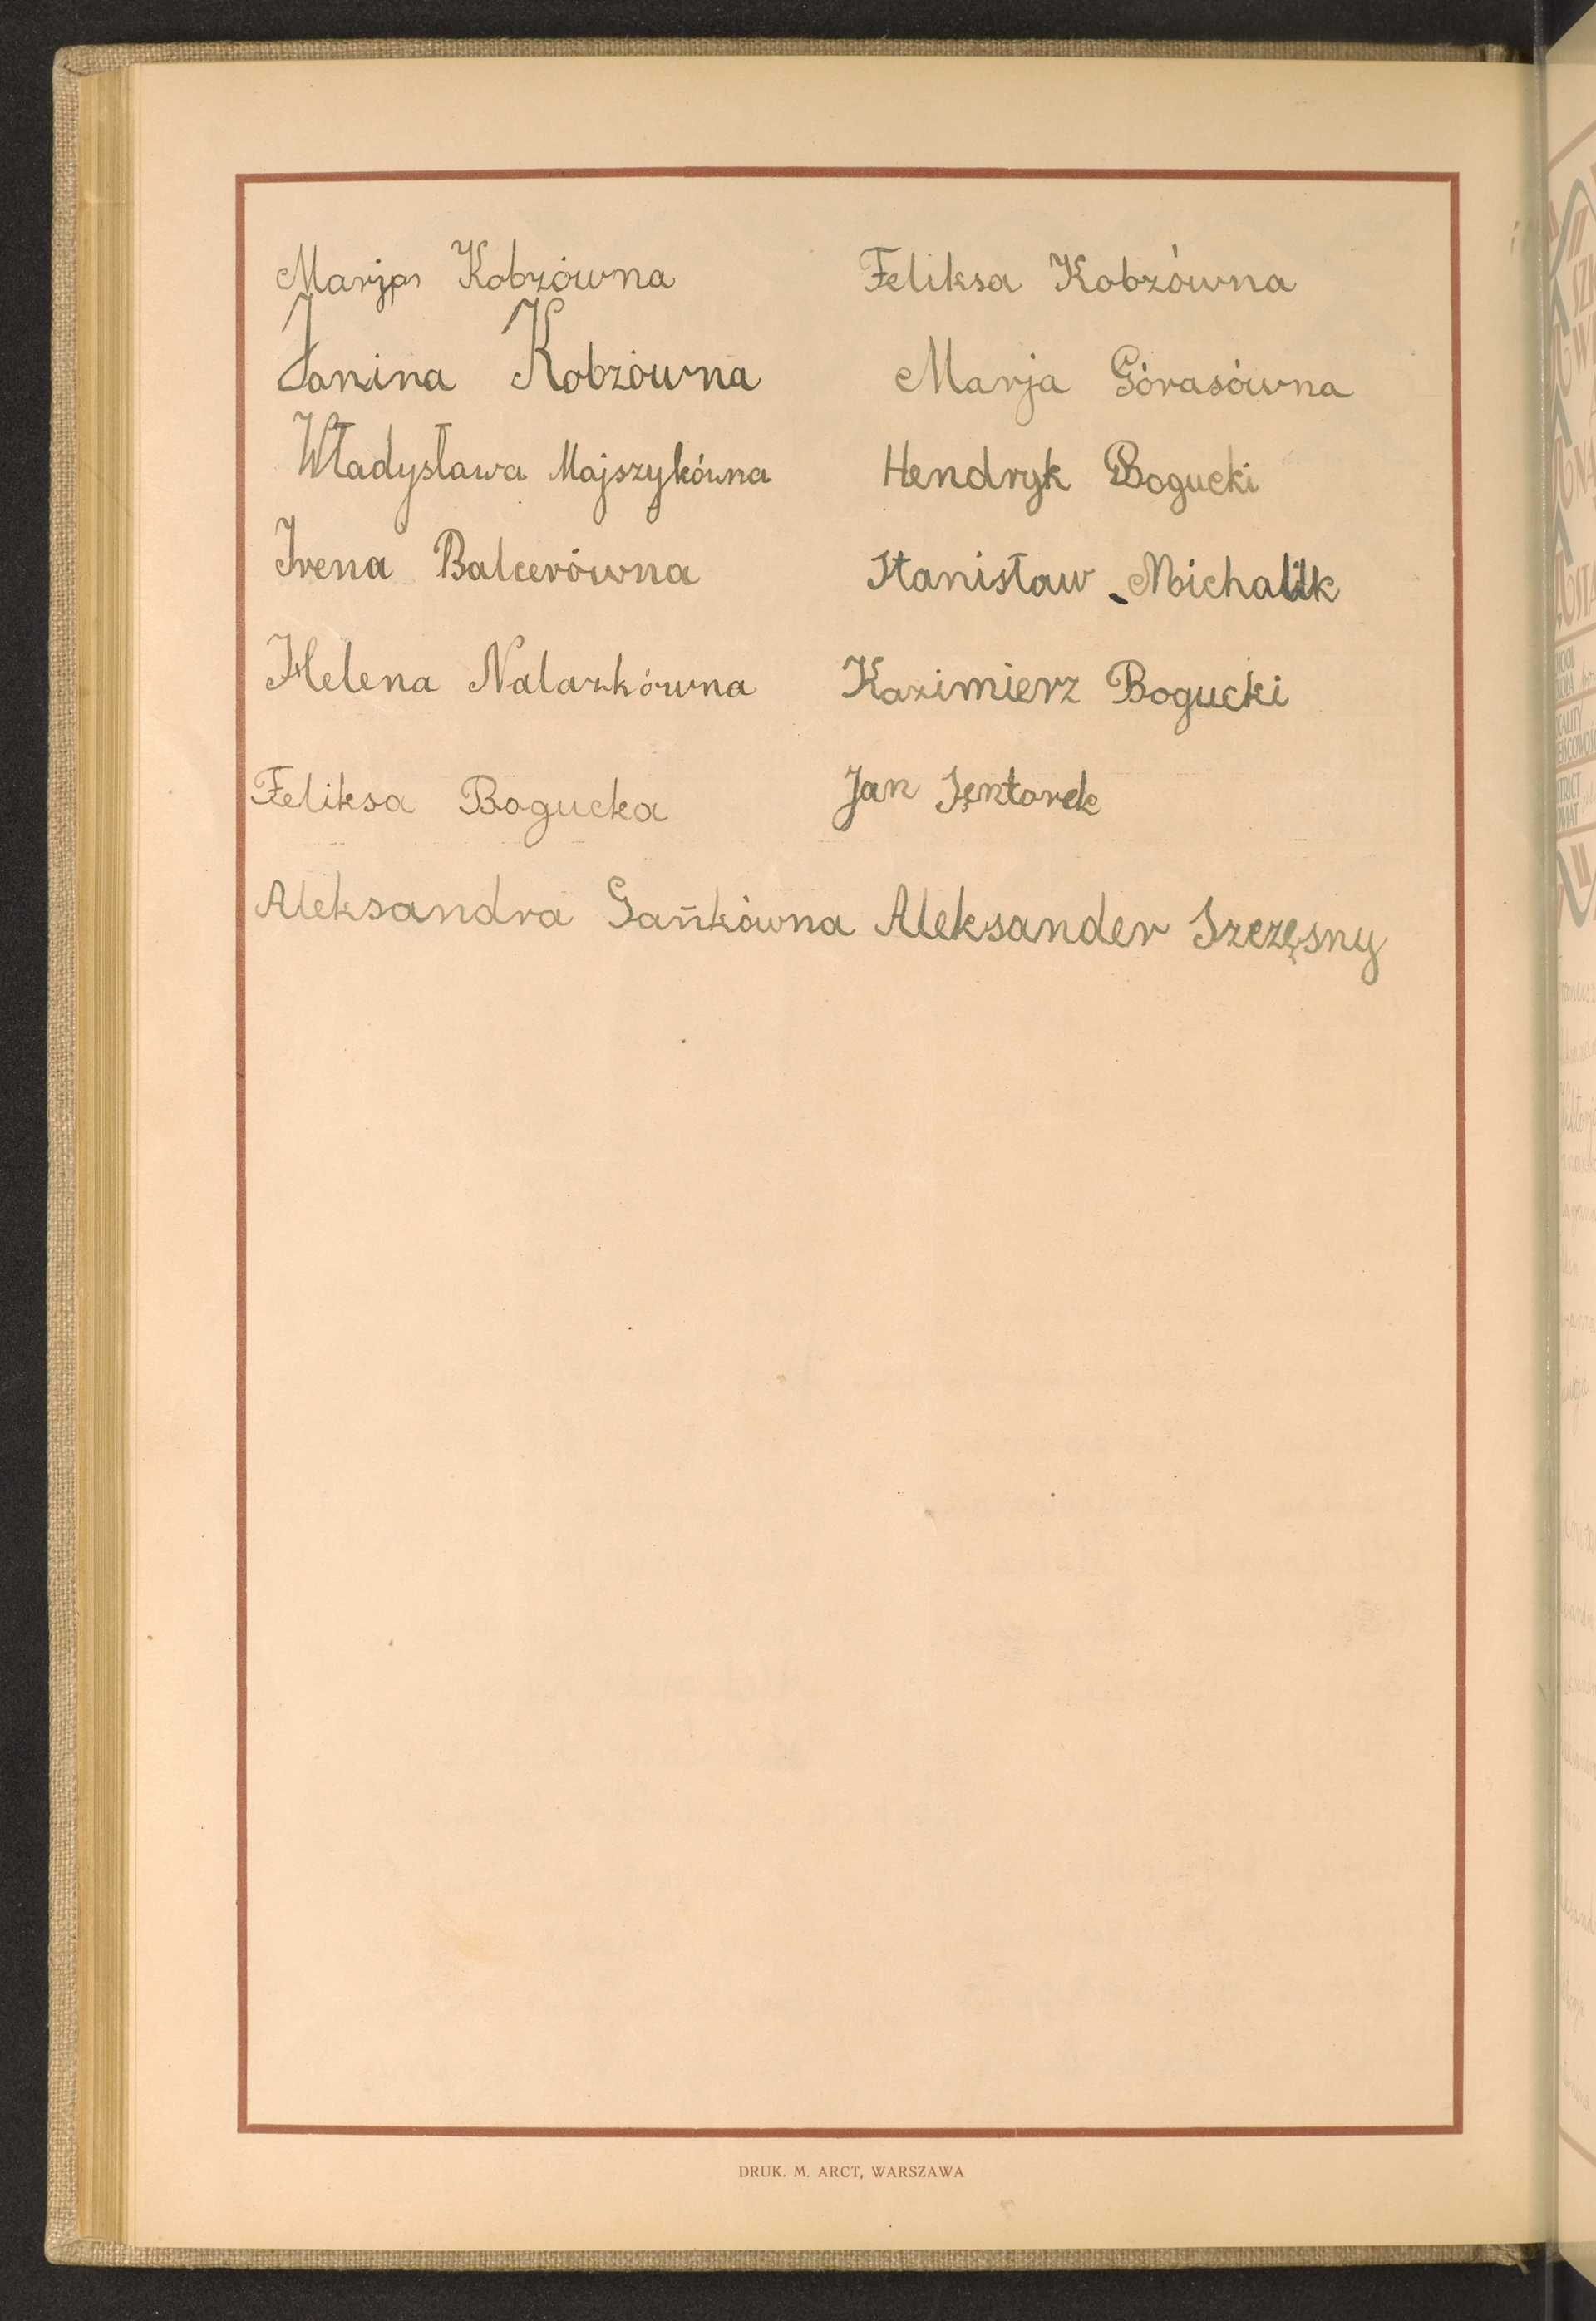 Marja Kobzówna Feliksa Kobzówna
Janina Kobzówna Marja Górasówna
Władysława Majszykówna Hendryk Bogucki
Irena Balcerówna Stanisław Michalik
Helena Nalazkówna Kazimierz Bogucki
Feliksa Bogucka Jan Sęntorek
Aleksandra Gańkówna Aleksander Szczęsny
DRUK. M. ARCT, WARSZAWA